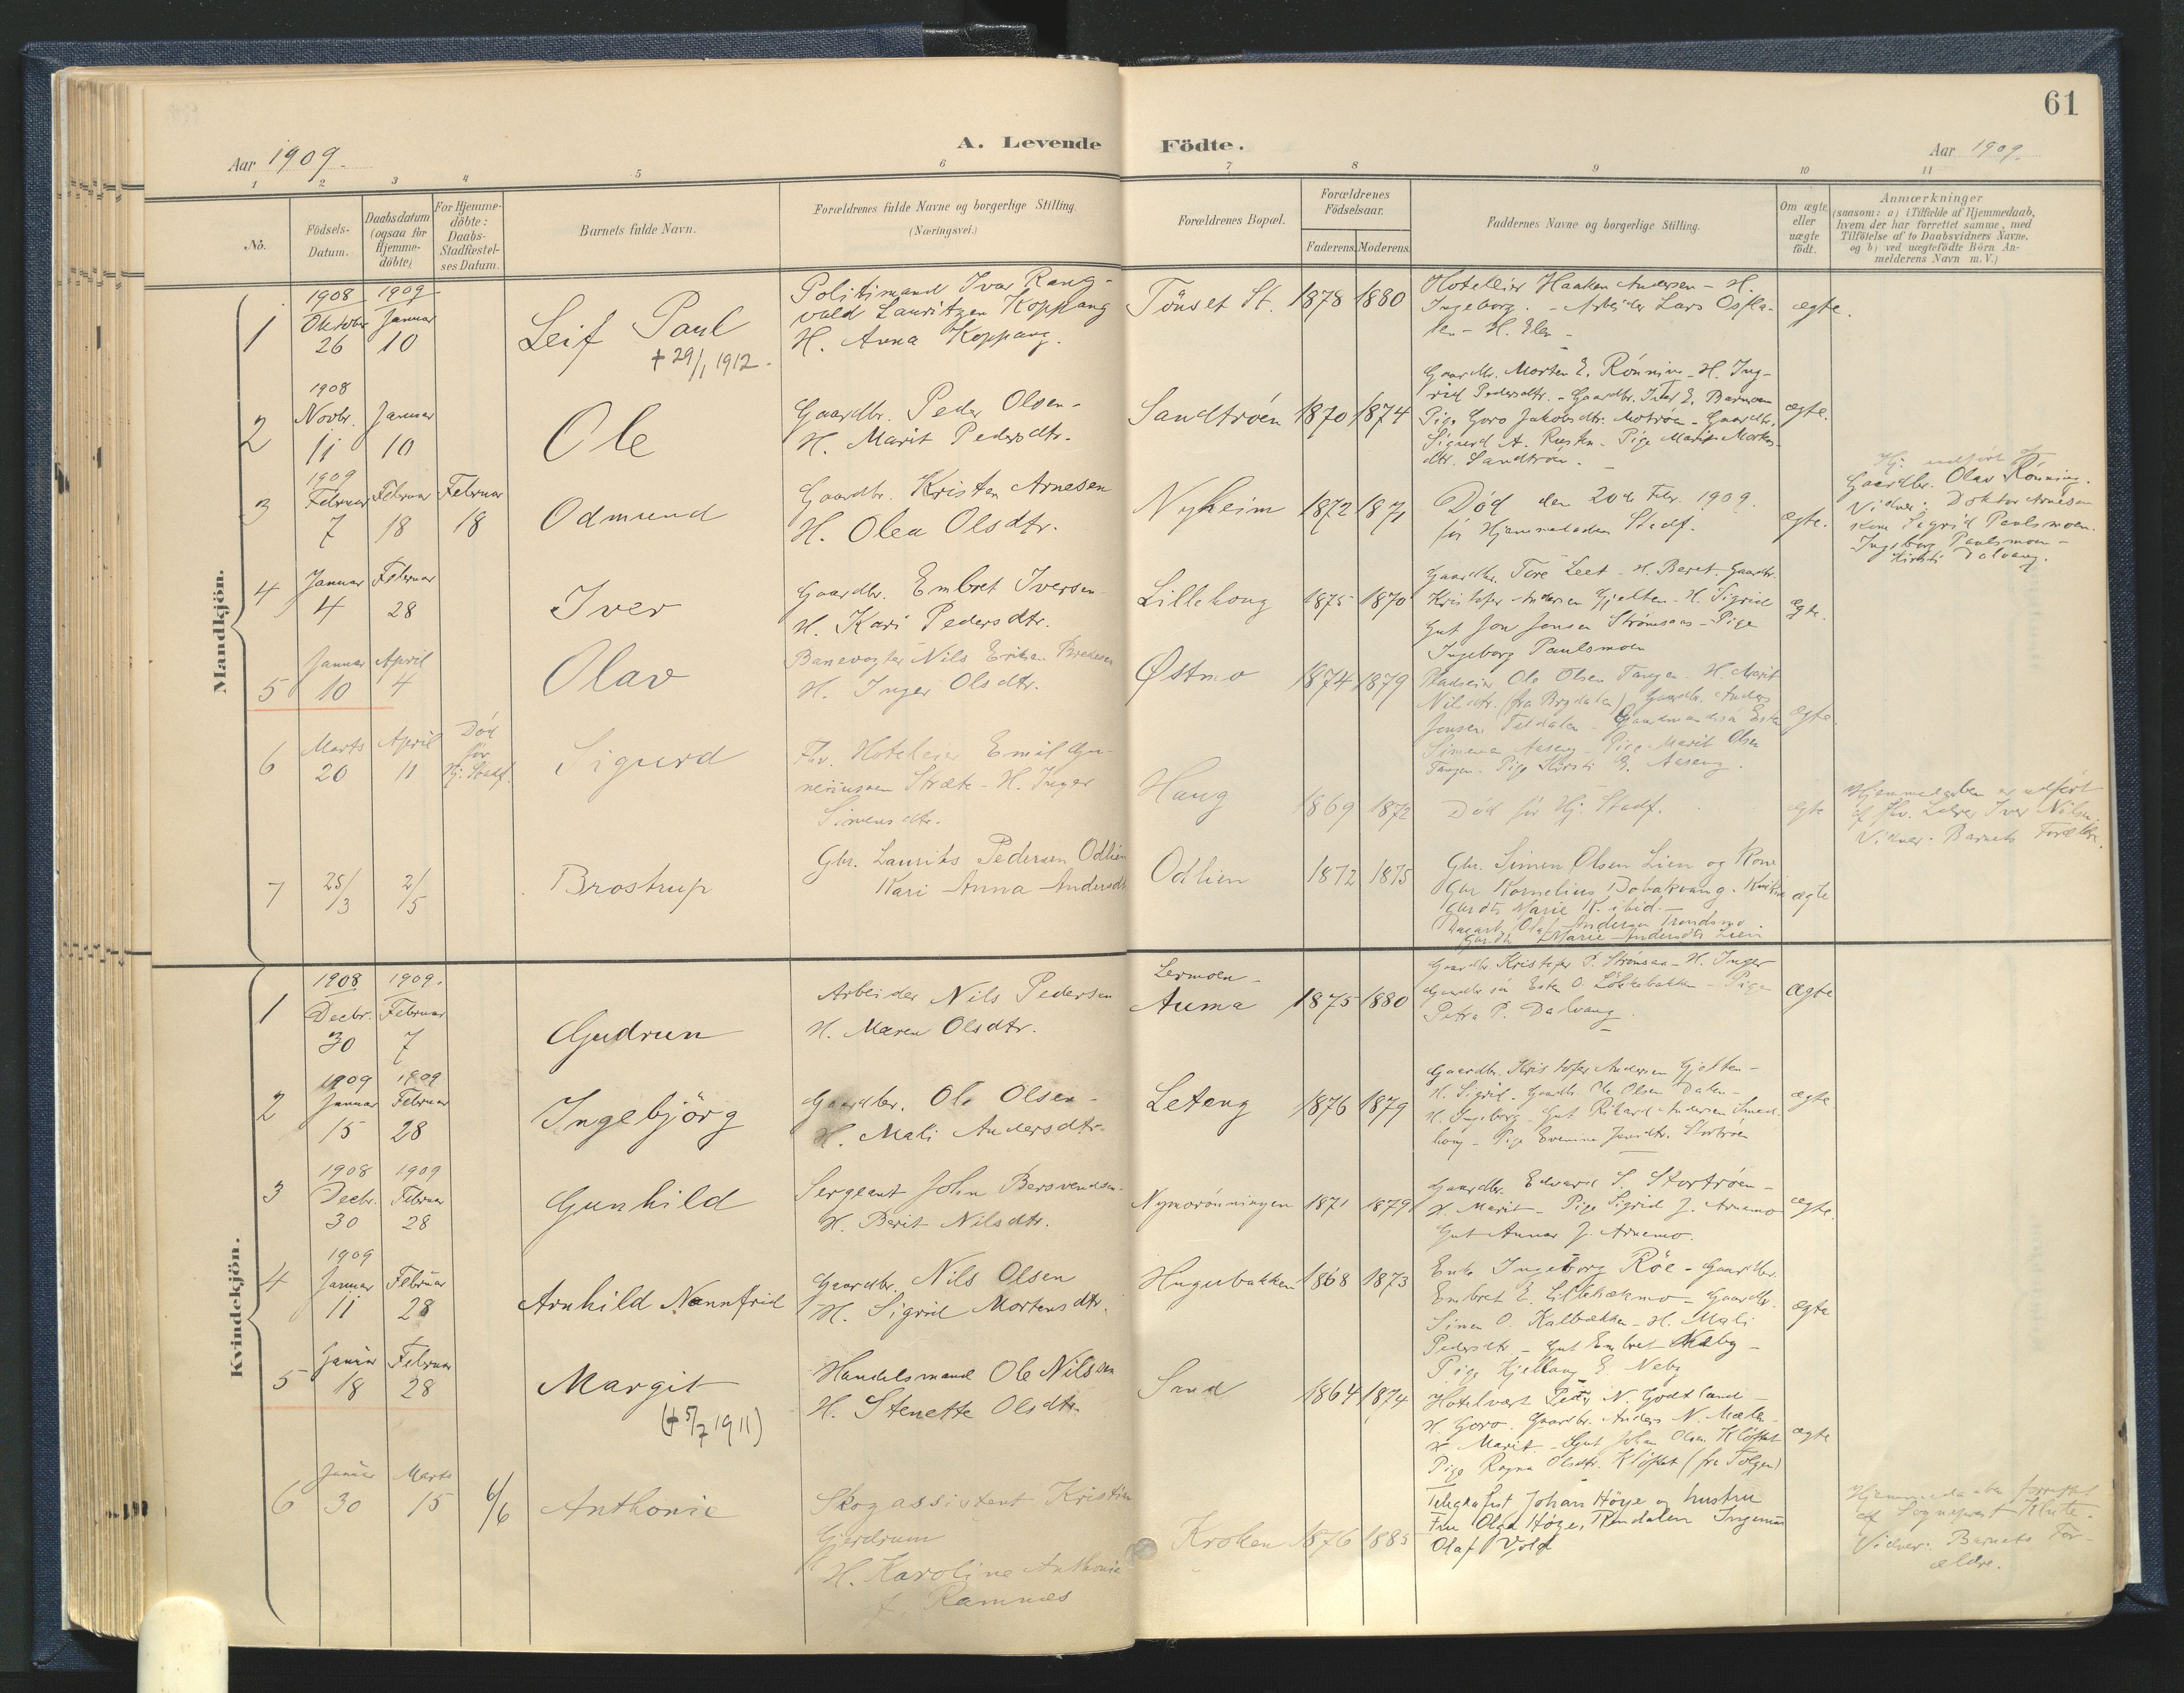 61
A. Levende Födte.
Aar 1909.
Aar 1909.
1 2 3 4 5 6 7 8 9 10 11
No.
Födsels-
Datum.
Daabsdatum
(ogsaa för
Hjemme-
döbte)
For Hjemme-
döbte:
Daabs-
Stadfæstel-
ses Datum.
Barnets fulde Navn.
Forældrenes fulde Navne og borgerlige Stilling.
(Næringsvei.)
Forældrenes Bopæl.
Forældrenes
Födselsaar.
Faderens. Moderens.
Faddernes Navne og borgerlige Stilling.
Om ægte
eller
uægte
födt.
Anmærkninger
(saasom: a) i Tilfælde af Hjemmedaab,
hvem der har forrettet samme, med
Tilföielse af to Daabsvidners Navne,
og b) ved uægtefödte Börn An-
melderens Navn m. V.)
Mandkjön.
1
1908
Oktober
26
1909
Januar
10
Leif Paul
+ 29/1 1912.
Politimand Ivar Rang-
vald Lauritzen Koppang
H. Anna Koppang.
Tönset St.
1878 1880
Hoteleier Haaken Andersen - H.
Ingeborg. - Arbeider Lars Osfla-
ten - H. Elen -
ægte.
2
1908
Novbr.
11
Januar
10
Ole
Gaardbr. Peder Olsen -
H. Marit Pedersdtr.
Sandtröen
1870 1874
Gaardbr. Morten E. Rönning - H. Ing-
rid Pedersdtr. - Gaardbr. Iver E. Barmoen
Pige Goro Jakobsdtr. Motröen - Gaardbr.
Sigurd A. Rusten - Pige Marit Mortens-
dtr. Sandtröen. -
ægte.
3
1909
Februar
7
Februar
18
Februar
18
Odmund
Gaardbr. Kristen Arnesen
H. Olea Olsdtr.
Nyheim
1872 1871
Död den 20de Febr. 1909.
för Hjemmedaaben Stadf.
ægte.
Hj. udfört af
Gaardbr. Olav Rönning.
Vidner: Doktor Arnesen
Kone Sigrid Paulsmoen.
Ingeborg Paulsmoen -
Kirsti Dalvang.
4
Januar
4
Februar
28
Iver
Gaardbr. Embret Iversen
H. Kari Pedersdtr.
Lillehoug
1875 1870
Gaardbr. Tore Leet - H. Beret. Gaardbr.
Kristofer Andersen Gjelten - H. Sigrid
Gut Jon Jonsen Strömsaas - Pige
Ingeborg Paulsmoen
ægte.
5
Januar
10
April
4
Olav
Banevogter Nils Eriksen Bredesen
H. Inger Olsdtr.
Østmo
1874 1879
Pladseier Ole Olsen Tangen - H. Marit
Nilsdtr. (fra Brydalen) Gaardbr. Anders
Jonsen Teldalen - Gaardmandssön Esten
Simensen Aaseng - Pige Marit Olsen
Tangen - Pige Kirsti E. Aaseng.
ægte.
6
Marts
20
April
11
Död
för
Hj. Stadf.
Sigurd
Fhv. Hoteleier Emil Gun-
neriussen Stræte - H. Inger
Simensdtr.
Haug
1869 1872
Död för Hj. Stadf.
ægte
Hjemmedaaben er udfört
af fhv. Lærer Iver Nilsen.
Vidner: Barnets Forældre.
7
25/3
2/5
Brostrup
Gbr. Laurits Pedersen Odlien
Kari Anna Andersdt
Odlien
1872 1875
Gbr. Simen Olsen Lien og Kone
Gbr Kornelius Bobakvang - Kvikne
Gbrdt. Marie K. ibid. -
Olaf Andersen Trondsmo
Gbrdt. Marie Andersdt. Lien
ægte
Kvindekjön.
1
1908
Decbr.
30
1909.
Februar
7
Gudrun
Arbeider Nils Pedersen
H. Maren Olsdtr.
Lermoen -
Auma
1875 1880
Gaardbr. Kristofer P. Strömsaas - H. Inger
Gaardbr. sön Esten O. Lökkebakken - Pige
Petra P. Dalvang.
ægte
2
1909
Januar
15
1909
Februar
28
Ingebjörg
Gaardbr. Ole Olsen -
H. Mali Andersdtr.
Leteng
1876 1879
Gaardbr. Kristofer Andersen Gjelten -
H. Sigrid - Gaardbr. Ole Olsen Dalen -
H. Ingeborg - Gut Rikard Andersen Smed-
houg - Pige Evenine Jensdtr. Stortröen
ægte
3
1908
Decbr.
30
1909
Februar
28
Gunhild
Sergeant John Bersvendsen -
H. Berit Nilsdtr.
Nymorönningen
1871 1879
Gaardbr. Edvard S. Stortröen -
H. Marit - Pige Sigrid J. Arnemo
Gut Annar J. Arnemo.
ægte.
4
1909
Januar
11
Februar
28
Arnhild Nannfrid
Gaardbr. Nils Olsen
H. Sigrid Mortensdtr.
Hugubakken
1868 1873
Enke Ingeborg Röe - Gaardbr.
Embret E. Lillebækmo - Gaardbr.
Simen O. Kalbækken - H. Mali
Pedersdtr. - Gut Embret Neby -
Pige Kjellaug E. Neby
ægte
5
Januar
18
Februar
28
Margit
(+ 5/7 1911)
Handelsmand Ole Nilssen
H. Stenette Olsdtr.
Sand
1864 1874
Hotelvært Peder N. Godtland -
H. Goro. Gaardbr. Anders N. Mælen -
H. Marit. - Gut Johan Olsen Klöftet
Pige Ragna Olsdtr. Klöftet (fra Tolgen)
ægte
6
Januar
30
Marts
15
6/6
Anthonie
Skogassistent Kristian
Gjerdrum
H. Karoline Anthonie
f. Ramnæs
Kroken
1876 1885
Telegrafist Johan Höye og hustru
Fru Olga Höye, Rendalen Ingeniör
Olaf Vold
Hjemmedaaben forrettet
af Sogneprest Klüte.
Vidner: Barnets For-
ældre.